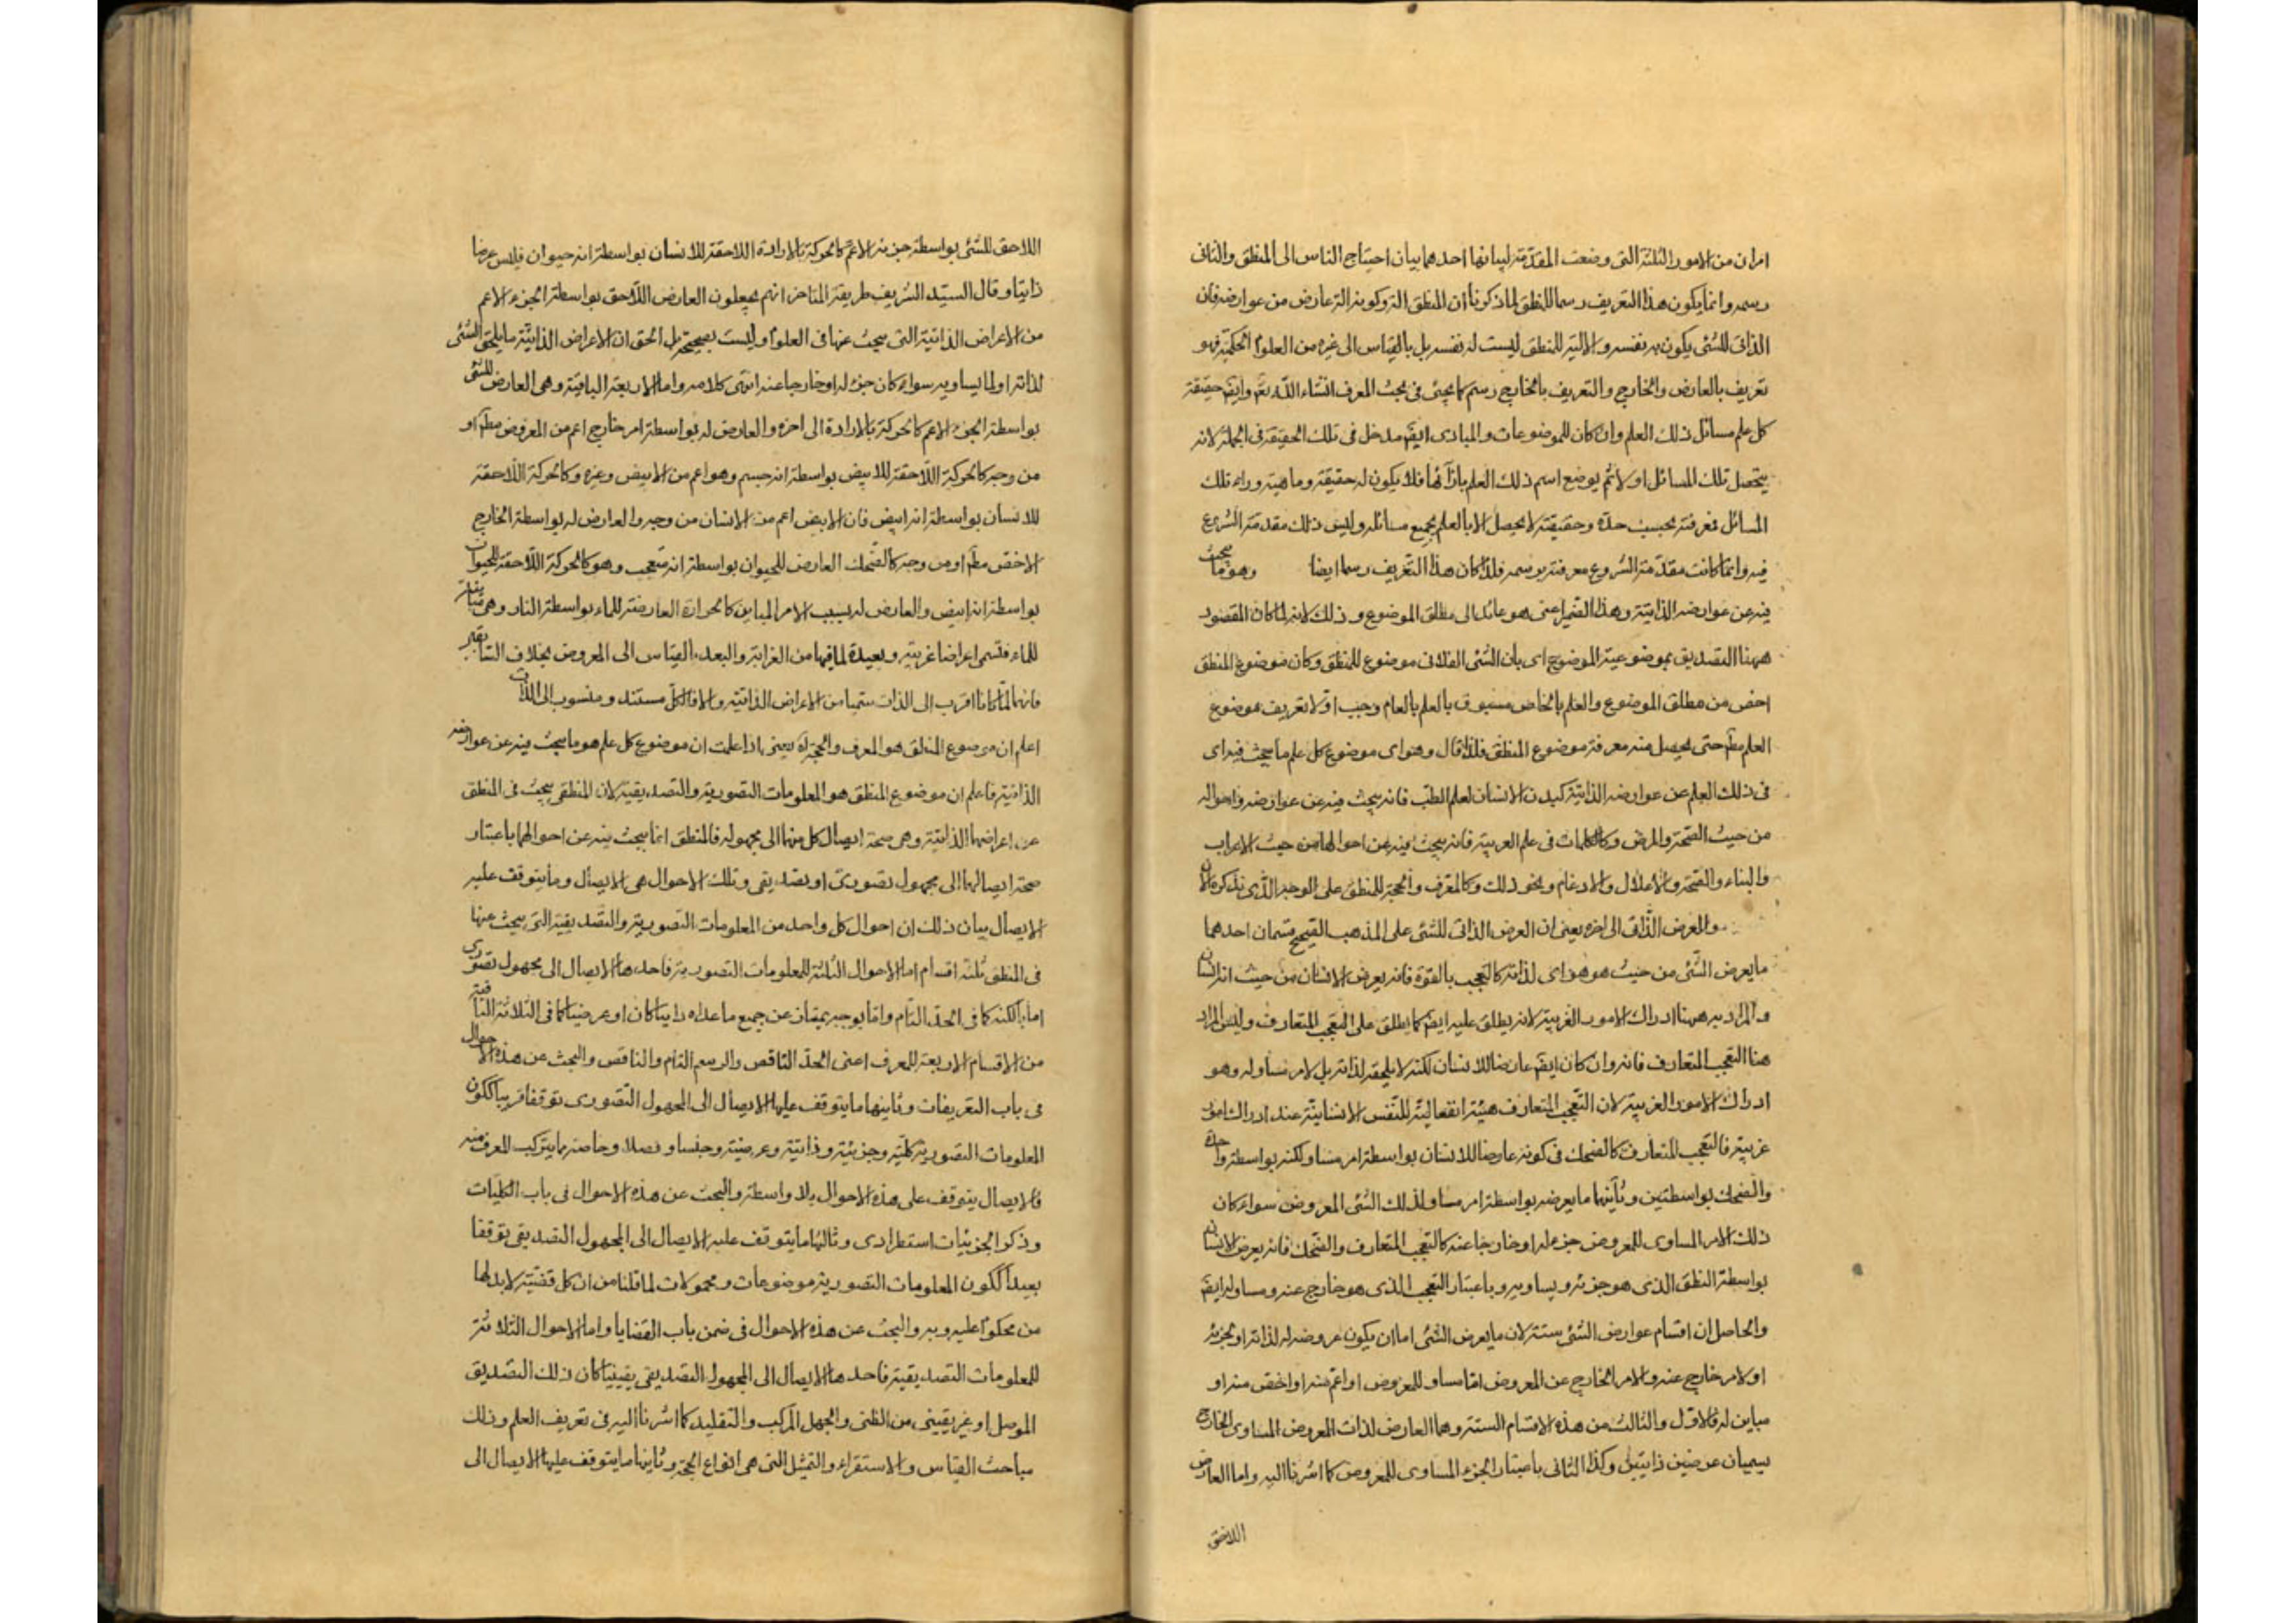 امران من الامور الثلثة التى وضعت المقدّمة لبيانها احدهما بيان احتياج الناس الى المنطق والثانى
رسمه وانما يكون هذا التعريف رسما للمنطق لما ذكرنا ان المنطق آلة وكونه آلة عارض من عوارضه فان
الذاتى للشئ يكون له بنفسه والآلية للمنطق ليست له بنفسه بل بالقياس الى غيره من العلوم الحكمية فهو
تعريف بالعارض والخارج والتعريف بالخارج رسم كما يجئ فى بحث المعرف انشاء الله تع وايضا حقيقة
كل علم مسائل ذلك العلم وان كان للموضوعات والمبادى ايضا مدخل فى تلك الحقيقة فى الجملة لانه
يتحصل تلك المسائل اولا ثم يوضع اسم ذلك العلم بازآئها فلا يكون له حقيقة وماهية وراء تلك
المسائل فمعرفته بحسب حدّه وحقيقته لا يحصل الا بالعلم بجميع مسائله وليس ذلك مقدمة الشروع
فيه وانما كانت مقدّمة الشروع معرفته برسمه فلذا كان هذا التعريف رسما ايضا وهو ما يبحث
فيه عن عوارضه الذاتية وهذا الضمير اعنى هو عائد الى مطلق الموضوع وذلك لانه لما كان المقصود
ههنا التصديق بموضوعية الموضوع اى بان الشئ الفلانى موضوع للمنطق وكان موضوع المنطق
اخص من مطلق الموضوع والعلم بالخاص مسبوق بالعلم بالعام وجب اولا تعريف موضوع
العلم مطم حتى يحصل منه معرفة موضوع المنطق فلذا قال وهو اى موضوع كل علم ما يبحث فيه اى
فى ذلك العلم عن عوارضه الذاتية كبدن الانسان لعلم الطبّ فانه يبحث فيه عن عوارضه واحواله
من حيث الصّحة والمرض وكالكلمات فى علم العربية فانه يبحث فيه عن احوالها من حيث الاعراب
والبناء والصّحة والاعلال والادغام ونحو ذلك وكالمعرف والحجة للمنطق على الوجه الّذى نذكره الآن
والعرض الذّاتى الى اخره يعنى ان العرض الذاتى للشئ على المذهب الصّحيح قسمان احدهما
ما يعرض الشّئ من حيث هو هو اى لذاته كالتّعجب بالقوة فانه يعرض الانسان من حيث انه انسان
والمراد به ههنا ادراك الامور الغريبة لانه يطلق عليه ايضا كما يطلق على التعجب المتعارف وليس المراد
هنا التعجب المتعارف فانه وان كان ايضا عارضا للانسان لكنه لا يلحقه لذاته بل لامر مساو له وهو
ادراك الامور الغريبة لان التّعجب المتعارف هيئة انفعالية للنّفس الانسانية عند ادراك امور
غريبة فالتعجب المتعارف كالضحك فى كونه عارضا للانسان بواسطة امر مساو لكنه بواسطة واحدة
والضحك بواسطتين وثآنيهما ما يعرضه بواسطة امر مساو لذلك الشئ المعروض سواء كان
ذلك الامر المساوى للمعروض جزء له او خارجا عنه كالتعجب المتعارف والضّحك فانه يعرض الانسان
بواسطة النطق الذى هو جزئه ويساويه وباعتبار التعجب الذى هو خارج عنه ومساو له ايضا
والحاصل ان اقسام عوارض الشئ ستة لان ما يعرض الشئ اما ان يكون عروضه له لذاته او لجزئه
او لامر خارج عنه والامر الخارج عن المعروض امّا مساو للمعروض او اعم منه او اخص منه او
مباين له فالاول والثالث من هذه الاقسام الستة وهما العارض لذات المعروض المساوى الخارج
يسميان عرضين ذاتيين وكذا الثانى باعتبار الجزء المساوى للمعروض كما اشرنا اليه واما العارض
اللاحق
اللاحق للشئ بواسطة جزئه الاعمّ كالحركة بالارادة اللاحقة للانسان بواسطة انه حيوان فليس عرضا
ذاتيا وقال السيّد الشريف طريقة المتاخر انهم يجعلون العارض اللّاحق بواسطة الجزء الاعم
من الاعراض الذاتية التى يبحث عنها فى العلوم وليست بصحيحة بل الحق ان الاعراض الذاتيّة ما يلحق الشئ
لذاته او لما يساويه سواء كان جزء له او خارجا عنه انتهى كلامه واما الاربعة الباقية وهى العارض للشئ
بواسطة الجزء الاعم كالحركة بالارادة الى اخره والعارض له بواسطة امر خارج اعم من المعروض مطم او
من وجه كالحركة اللّاحقة للابيض بواسطة انه جسم وهو اعم من الابيض وغيره وكالحركة اللّاحقة
للانسان بواسطة انه ابيض فان الابيض اعم من الانسان من وجه والعارض له بواسطة الخارج
الاخصّ مطم او من وجه كالضّحك العارض للحيوان بواسطة انه متعجب وهو كالحركة اللّاحقة للحيوان
بواسطة انه ابيض والعارض له بسبب الامر المباين كالحرارة العارضة للماء بواسطة النار وهى مباينة
للماء فتسمى اعراضا غريبة وبعيدة لما فيها من الغرابة والبعد بالقياس الى المعروض بخلاف
فانهما لمّا كانا اقرب الى الذات سميا من الاعراض الذاتية والا فالكلّ مستند ومنسوب الى الذات
اعلم ان موضوع المنطق هو المعرف والحجّة اه يعنى اذا علمت ان موضوع كل علم هو ما يبحث فيه عن عوارضه
الذاتية فاعلم ان موضوع المنطق هو المعلومات التصورية والتصديقية لان المنطقى يبحث فى المنطق
عن اعراضها الذاتية وهى صحة ايصال كل منهما الى مجهوله فالمنطق انما يبحث فيه عن احوالها باعتبار
صحة ايصالهما الى مجهول تصورىّ او تصديقى وتلك الاحوال هى الايصال وما يتوقف عليه
الايصال بيان ذلك ان احوال كل واحد من المعلومات التصورية والتصديقية التى يبحث عنها
فى المنطق ثلثة اقسام اما الاحوال الثلثة للمعلومات التصورية فاحدها الايصال الى مجهول تصورى
اما بالكنه كما فى الحدّ التّام وامّا بوجه يمتاز عن جميع ما عداه ذاتيا كان او عرضيا كما فى الثلاثة الباقية
من الاقسام الاربعة للمعرف اعنى الحدّ النّاقص والرسم التام والناقص والبحث عن هذه الاحوال
فى باب التعريفات وثانيها ما يتوقف عليها الايصال الى المجهول التّصورى توقفا قريبا ككون
المعلومات التصورية كلّية وجزئية وذاتية وعرضية وجنسا وفصلا وخاصة ما يتركب المعرف منه
فالايصال يتوقف على هذه الاحوال بلا واسطة والبحث عن هذه الاحوال فى باب الكلّيات
وذكر الجزئيات استطرادى وثالثها ما يتوقف عليه الايصال الى المجهول التصديقى توقفا
بعيدا ككون المعلومات التصورية موضوعات ومحمولات لما قلنا من ان كل قضيّة لا بد لها
من محكوم عليه وبه والبحث عن هذه الاحوال فى ضمن باب القضايا واما الاحوال الثلاثة
للمعلومات التصديقية فاحدها الايصال الى المجهول التصديقى يقينيا كان ذلك التصديق
الموصل او غير يقينى من الظنى والجهل المركب والتقليد كما اشرنا اليه فى تعريف العلم وذلك
مباحث القياس والاستقراء والتمثيل التى هى انواع الحجّة وثانيها ما يتوقف عليها الايصال الى